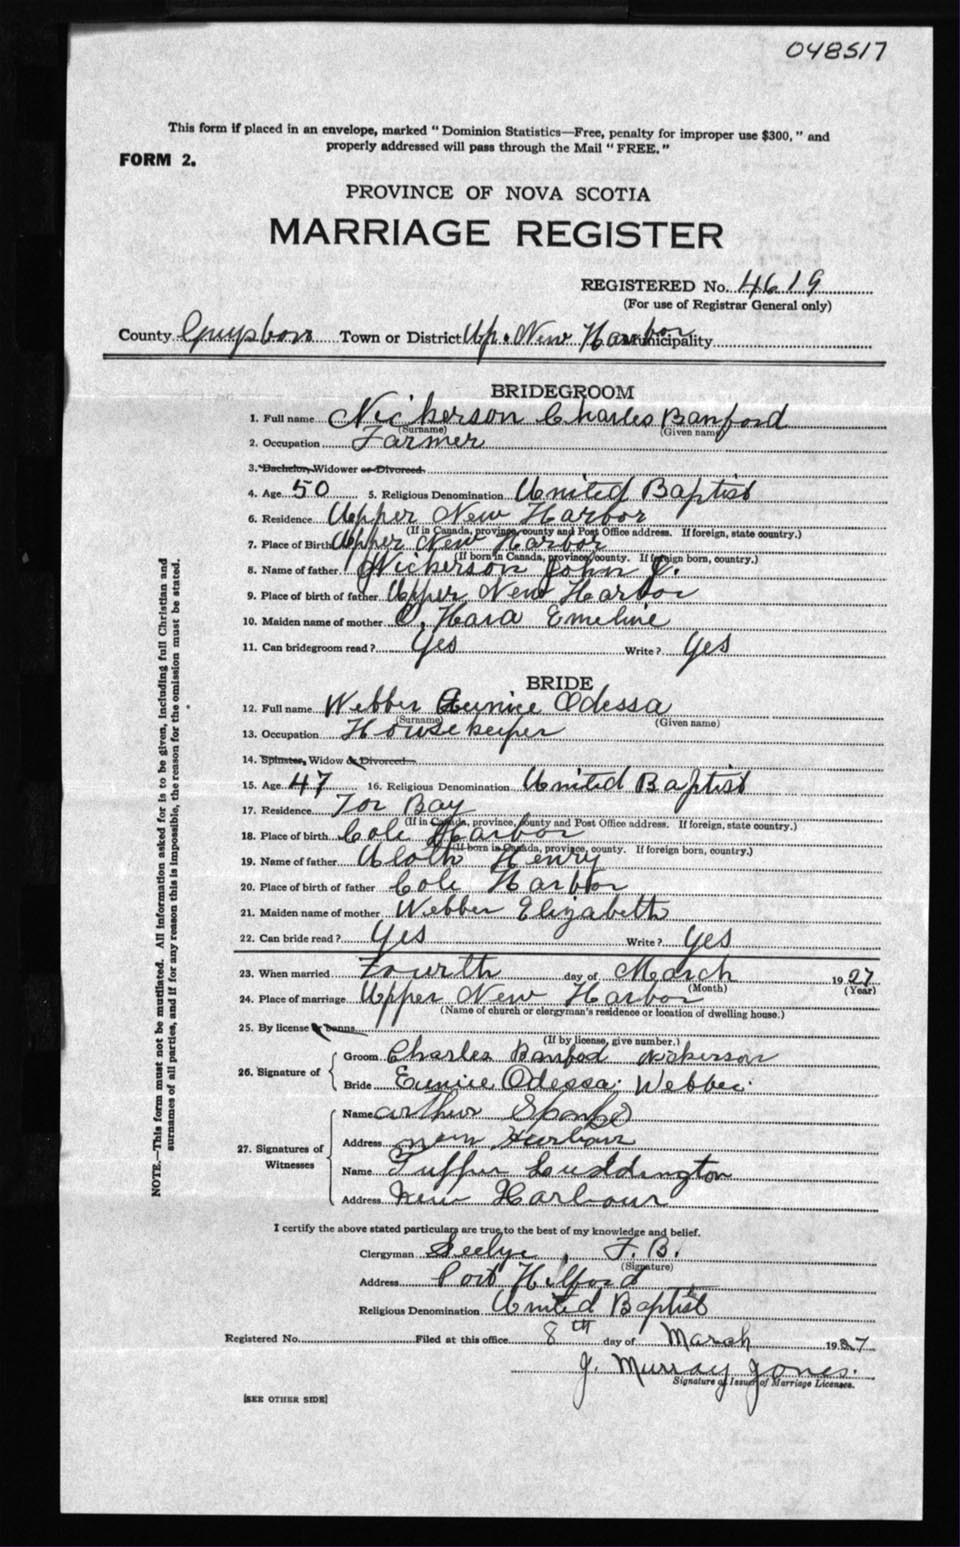 048517
This form if placed in an envelope, marked "Dominion Statistics—Free, penalty for improper use $300," and
properly addressed will pass through the Mail "FREE."
FORM 2.
PROVINCE OF NOVA SCOTIA
MARRIAGE REGISTER
REGISTERED No. 4619
(For use of Registrar General only)
County Guysboro Town or District Up. New Harbor Municipality
BRIDEGROOM
1. Full name Nickerson Charles Banford
(Surname) (Given name)
2. Occupation Farmer
3. Bachelor, Widower or Divorced
4. Age 50 5. Religious Denomination United Baptist
6. Residence Upper New Harbor
(If in Canada, province, county and Post Office address. If foreign, state country.)
7. Place of Birth Upper New Harbor
(If born in Canada, province, county. If foreign born, country.)
8. Name of father Nickerson John J.
9. Place of birth of father Upper New Harbor
10. Maiden name of mother O'Hara Emeline
11. Can bridegroom read? Yes Write? Yes
BRIDE
12. Full name Webber Eunice Odessa
(Surname) (Given name)
13. Occupation Housekeeper
14. Spinster, Widow or Divorced
15. Age 47 16. Religious Denomination United Baptist
17. Residence Tor Bay
(If in Canada, province, county and Post Office address. If foreign, state country.)
18. Place of birth Cole Harbor
(If born in Canada, province, county. If foreign born, country.)
19. Name of father Henry
20. Place of birth of father Cole Harbor
21. Maiden name of mother Webber Elizabeth
22. Can bride read? Yes Write? Yes
23. When married Fourth day of March 1927
(Month) (Year)
24. Place of marriage Upper New Harbor
(Name of church or clergyman's residence or location of dwelling house.)
25. By license or banns
(If by license, give number.)
26. Signature of
Groom Charles Banford Nickerson
Bride Eunice Odessa Webber
27. Signatures of Witnesses
Name Arthur
Address New Harbour
Name Tupper Luddington
Address New Harbour
I certify the above stated particulars are true to the best of my knowledge and belief.
Clergyman Seelye, F. B.
(Signature)
Address Port Hilford
Religious Denomination United Baptist
Registered No. Filed at this office 8th day of March 1927
J. Murray Jones.
Signature of Issuer of Marriage Licenses.
[SEE OTHER SIDE]
NOTE.—This form must not be mutilated. All information asked for is to be given, including full Christian and
surnames of all parties, and if for any reason this is impossible, the reason for the omission must be stated.